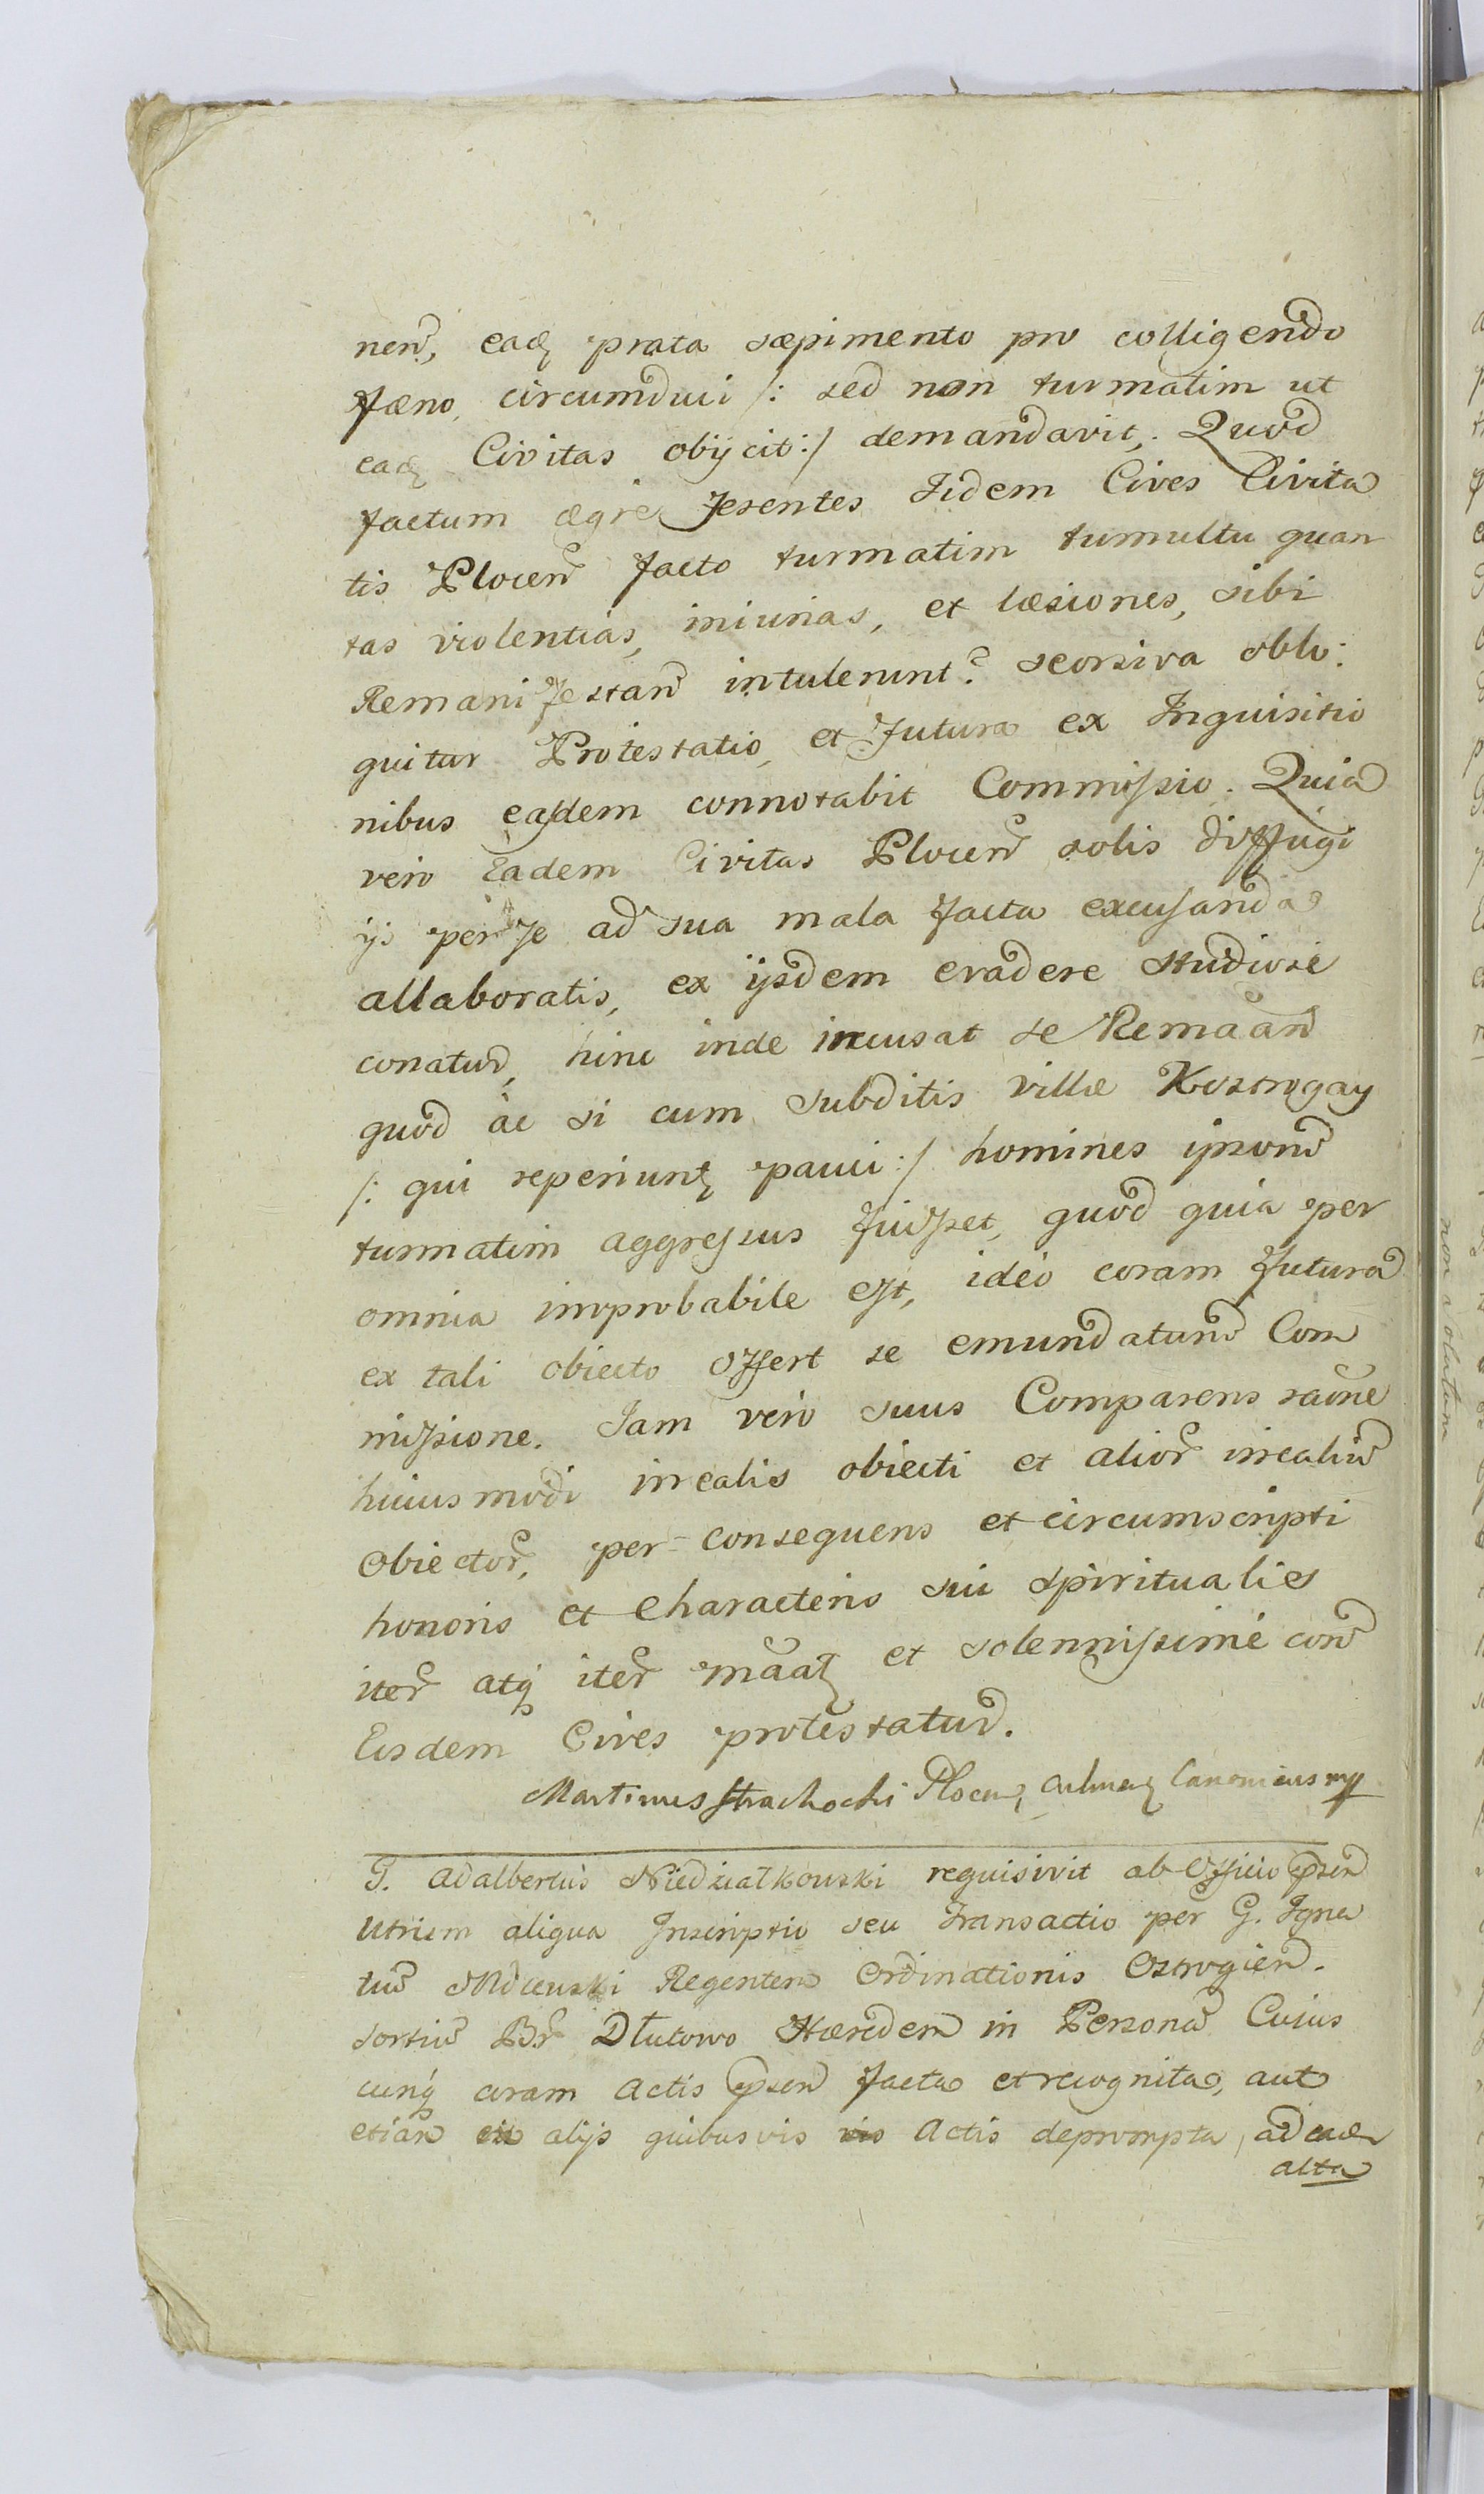 nen̄, eadę prata sæpimento pro colligendo
fæno, circumduci /: sed non turmatim ut
eadę Civitas obÿcit :/ demandavit, Quod
factum ægre ferentes Iidem Cives Civita
tis Plocen̄ facto turmatim tumultu quan
tas violentias, iniurias, et læsiones, sibi
Remanifestan̄ intulerunt? seorsiva oblo:
quitur Protestatio, et futura ex Inquisitio
nibus easdem connotabit Commissio. Quia
vero Eadem Civitas Plocen̄ solis diffugi
ÿs per se ad sua mala facta excusanda
allaboratis, ex ÿsdem evadere studiose
conatur, hinc inde incusat se Remāan̄
quod ac si cum subditis villæ Kostrogay
/: qui reperiuntę pauci :/ homines ipsorū
turmatim aggressus fuisset, quod quia per
omnia improbabile est, ideo coram futura
ex tali obiecto offert se emundaturū Com
missione. Jam vero suus Comparens raōne
huiusmodi irrealis obiecti et alior̄ irrealiū
obiector̄, per consequens et circumscripti
honoris et characteris sui spiritualis
iter̄ atq; iter̄ māatę et solennissime con̄
Eosdem Cives protestatur.
Martinus Strachocki Plocen, Culmen Canonicus mp
G. Adalbertus Niedziałkowski requisivit ab Officio p̄sen̄
utrum aliqua Inscriptio seu Transactio per G. Igna
tiū Mdzewski Regentem Ordinationis Ostrogien̄.
sortiū Br̄ Dłutowo Hæredem in Persona Cuius
cunq; coram Actis p̄sen̄ facta et recognita, aut
etiam ex alijs quibusvis Actis deprompta, ad eadę
alta